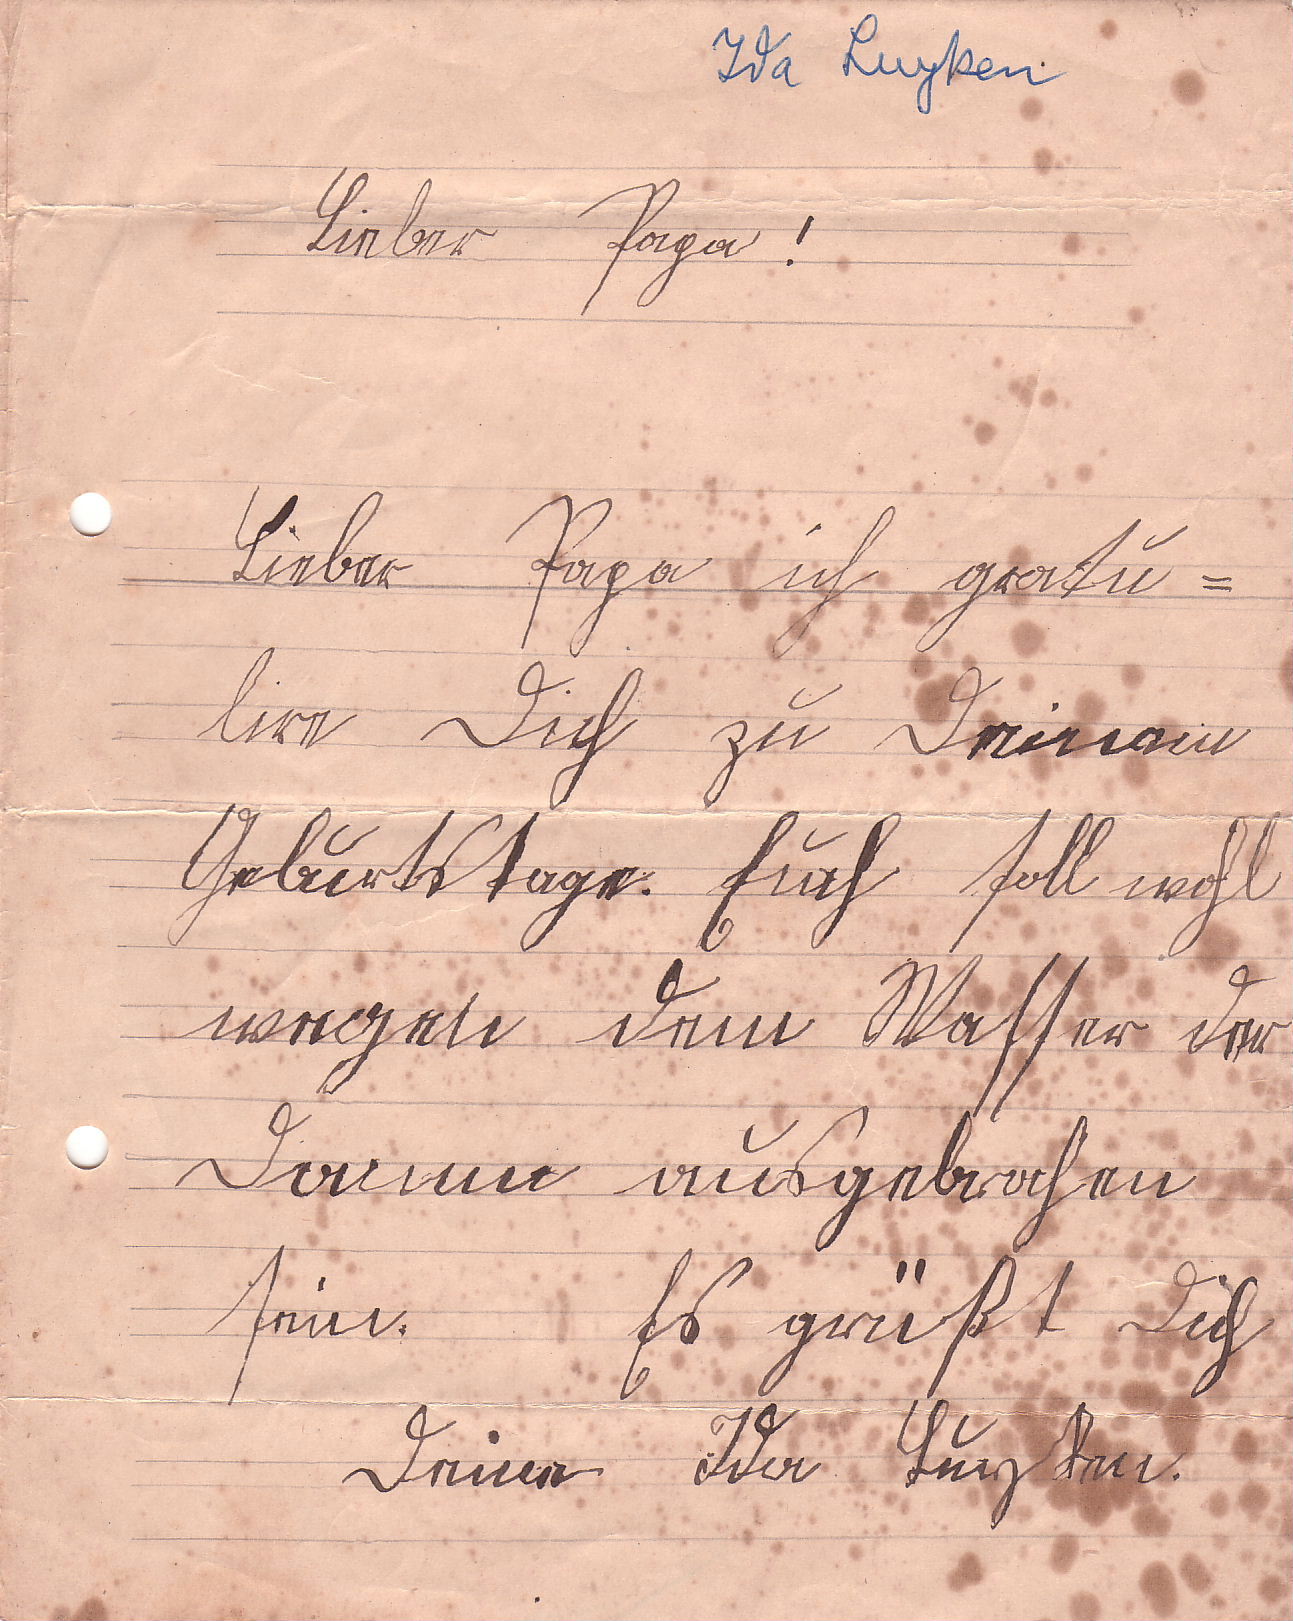 Ida Luyken
Lieber Papa!
Lieber Papa ich gratu=
lire Dich zu Deinem
Geburtstage. Euch soll wohl
wegen dem Wasser der
Damm ausgebrochen
sein. Es grüßt Dich
Deine Ida Luyken.